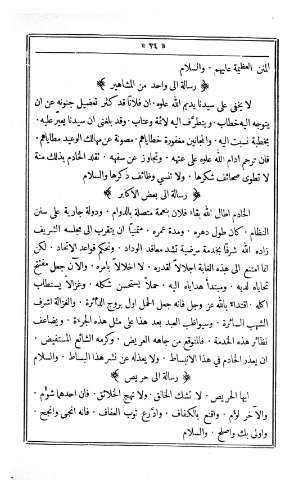 « ٢٤ »
المنن العظيمة عليهم . والسلام
﴿ رسالة الى واحد من المشاهير ﴾
لا يخفى على سيدنا يديم الله علوه . ان فلانًا قد كبر تفضيل جنونه عن ان
يتوجه اليه خطاب . ويتطرف اليه لائمة وعتاب . وقد بلغنى ان سيدنا يعير عليه .
بخطيئة نسبت اليه . والمجانين مغفورة خطاياهم . مصونة عن مهالك الوعيد مطاياهم .
فان ترحم ادام الله علوه على عتهه . وتجاوز عن سفهه . تقلد الخادم بذلك منة
لا تطوى صحائف شكرها . ولا تنسى وظائف ذكرها والسلام
﴿ رسالة الى بعض الاكابر ﴾
الخادم اطال الله بقاء فلان بنعمة متصلة بالدوام . ودولة جارية على سنن
النظام . كان طول دهره . ومدة عمره . متمنيًا ان يتقرب الى مجلسه الشريف
زاده الله شرفًا بخدمة مرضية تشد معاقد الوداد . وتحكم قواعد الاتحاد . لكن
انما امتنع الى هذه الغاية اجلالًا لقدره . لا اخلالًا بامره . والآن جعل مفتح
تحاياه لديه . ومبتدأ هداياه اليه . حملًا يستحسن شكله . وغزالًا يستطاب
اكله . اقتداء بالله عز وجل فانه جعل الحمل اول بروج الدائرة . والغزالة اشرف
الشهب السائرة . وسيواظب العبد بعد هذا على مثل هذه الجرءة . ويضاعف
نظائر هذه الخدمة . فالمتوقع من جاهه العريض . وكرمه الشائع المستفيض .
ان يعذر الخادم في هذا الانبساط . ولا يعذله عن نشر هذا البساط . والسلام
﴿ رسالة الى حريص ﴾
ايها الحريص . لا تشك الخالق . ولا تهج الخلائق . فان احدهما شؤم .
والآخر لؤم . واقنع بالكفاف . وادرع ثوب العفاف . فانه انجى وانجح .
واولى بك واصلح . والسلام